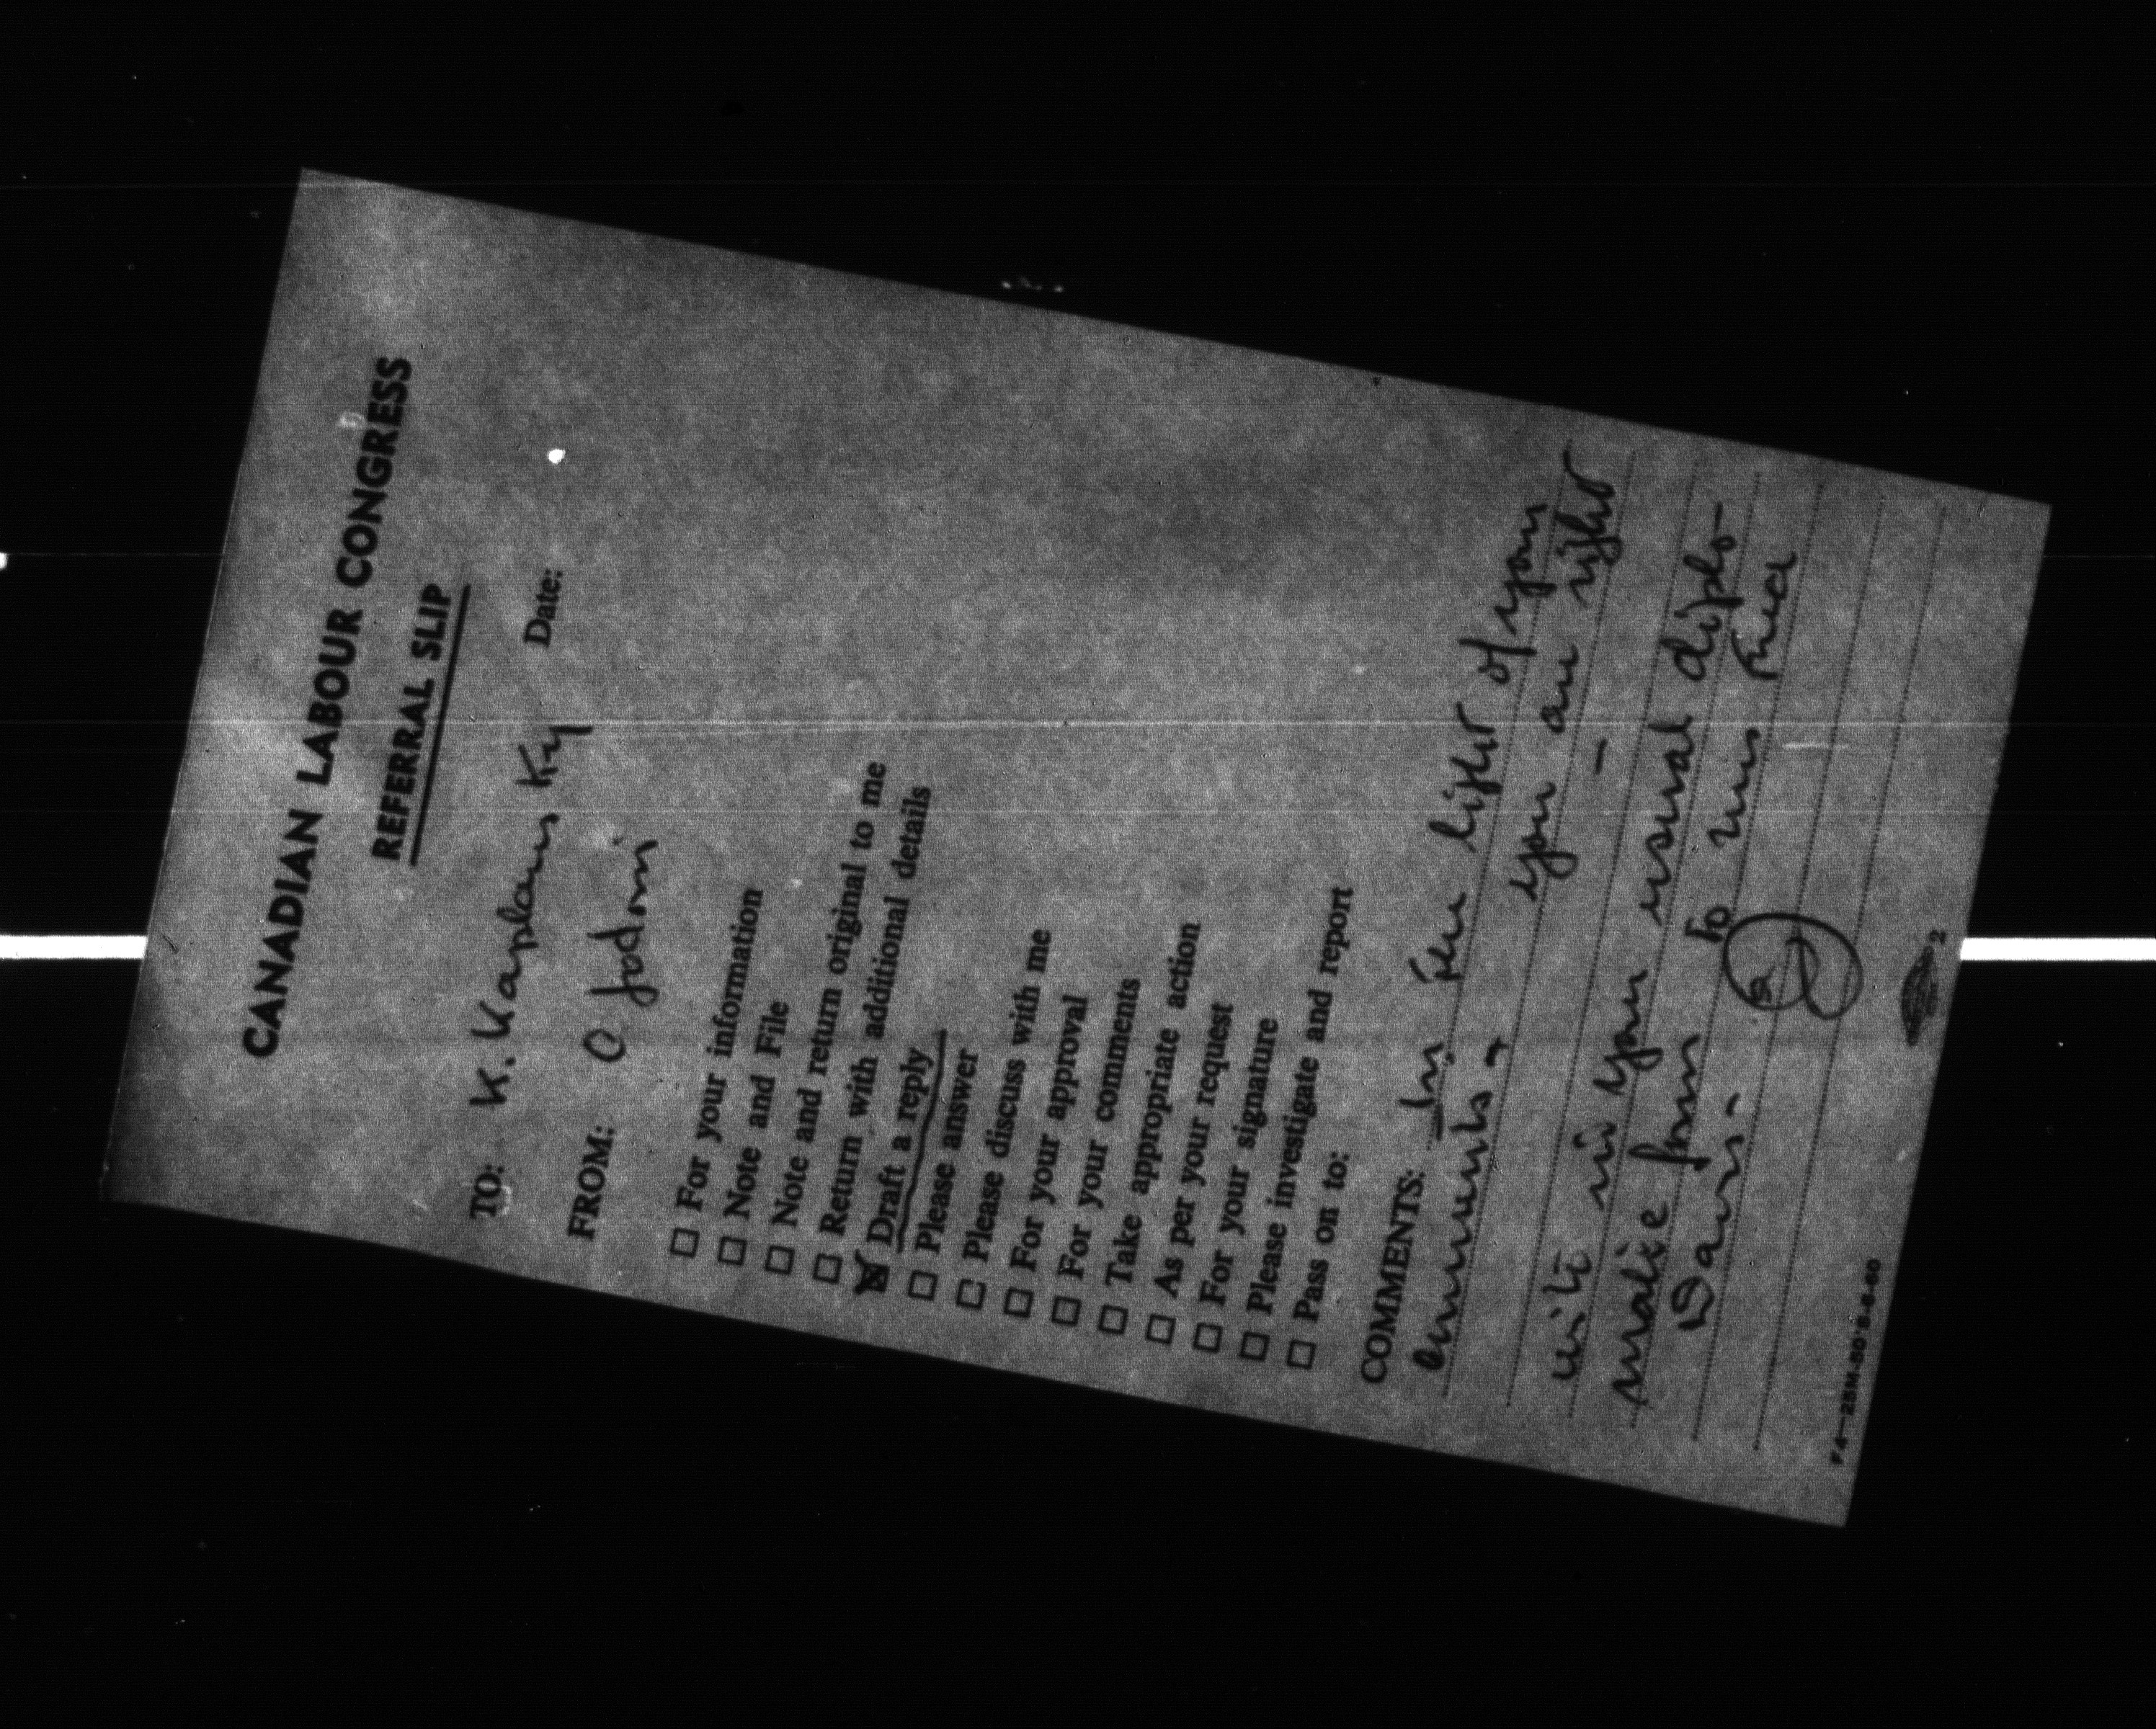 CANADIAN LABOUR CONGRESS
REFERRAL SLIP
TO: K. Kaplansky Date:
FROM: C Jodoin
☐ For your information
☐ Note and File
☐ Note and return original to me
☐ Return with additional details
☒ Draft a reply
☐ Please answer
☐ Please discuss with me
☐ For your approval
☐ For your comments
☐ Take appropriate action
☐ As per your request
☐ For your signature
☐ Please investigate and report
☐ Pass on to:
COMMENTS: In the light of your
comments -
you are right
-
in your usual diplo-
matic form to
Davis -
2
F4-25M-50'S-8-60